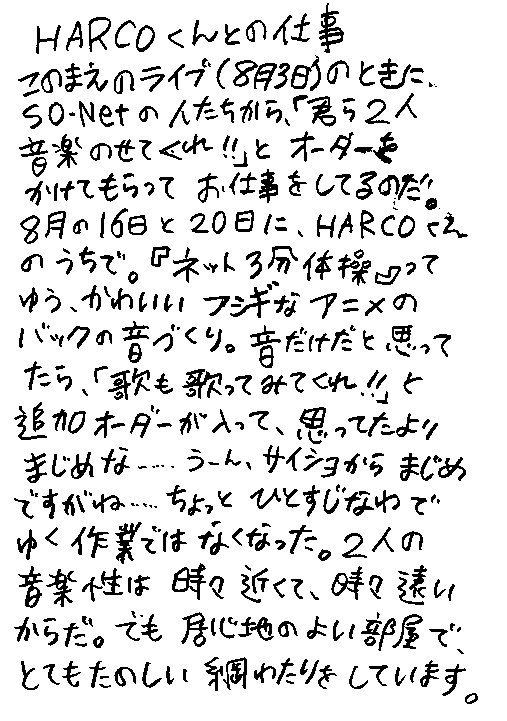 HARCOくんとの仕事
このまえのライブ(8月3日)のときに、
SO-Netの人たちから、「君ら2人
音楽のせてくれ!!」と オーダーを
かけてもらって お仕事をしてるのだ!。
8月の16日と20日に、HARCOくん
のうちで。『ネット3分体操』って
ゆう、かわいい フシギな アニメの
バックの音づくり。音だけだと思って
たら、「歌も歌ってみてくれ!!」と
追加オーダーが入って、思ってたより
まじめな……うーん、サイショから まじめ
ですがね…‥ちょっと ひとすじなわで
ゆく作業では なくなった。2人の
音楽性は 時々 近くて、時々 遠い
からだ。でも 居心地のよい部屋で、
とてもたのしい 綱わたりを しています。